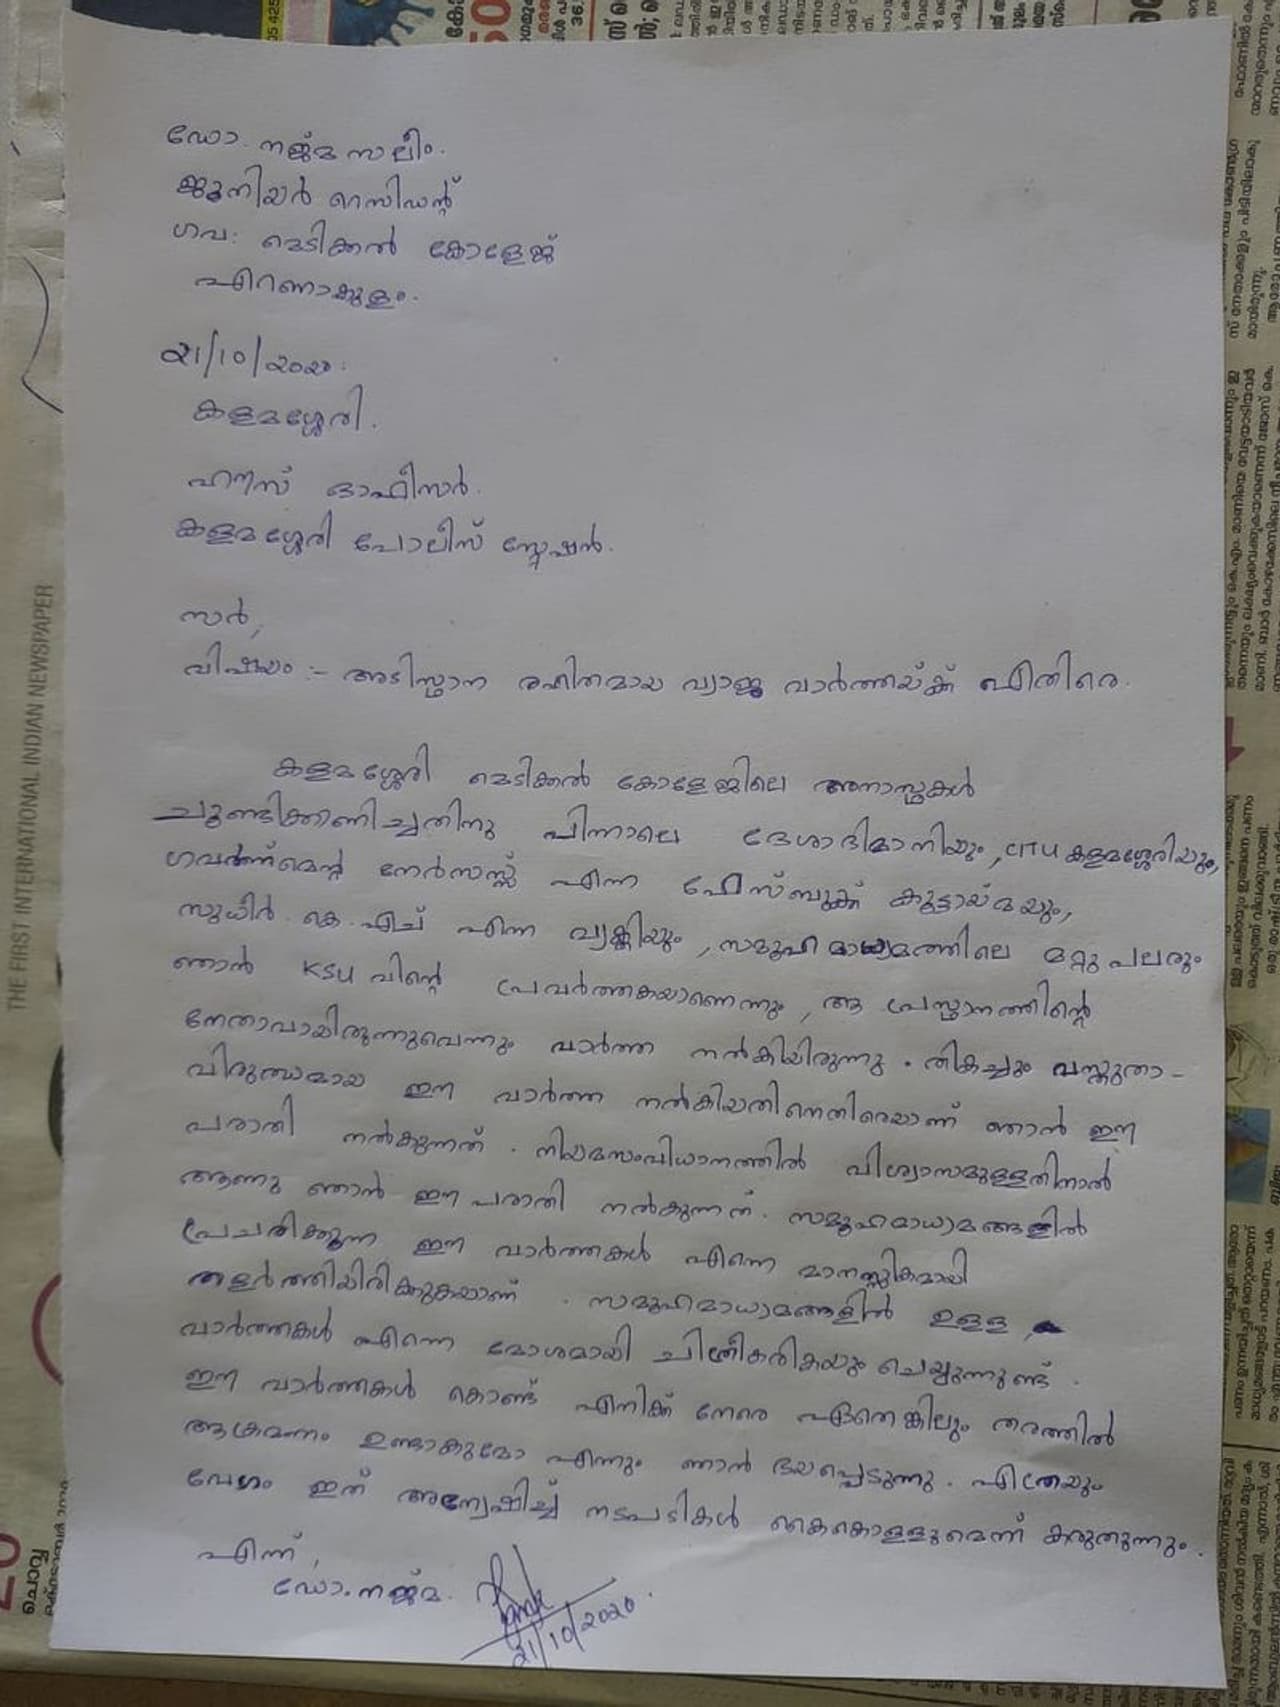 ഡോ. നജ്മ സലീം.
ജൂനിയർ റെസിഡന്റ്
ഗവ: മെടിക്കൽ കോളേജ്
എറണാകുളം.
21/10/2020.
കളമശ്ശേരി.
ഹൗസ് ഓഫീസർ.
കളമശ്ശേരി പോലീസ് സ്റ്റേഷൻ.
സർ,
വിഷയം :- അടിസ്ഥാന രഹിതമായ വ്യാജ വാർത്തയ്ക്ക് എതിരെ.
കളമശ്ശേരി മെടിക്കൽ കോളേജിലെ അനാസ്ഥകൾ
ചൂണ്ടിക്കാണിച്ചതിനു പിന്നാലെ ദേശാഭിമാനിയും, CITU കളമശ്ശേരിയും,
ഗവർണ്മെന്റ് നേർസസ്സ് എന്ന ഫേസ്ബുക്ക് കൂട്ടായ്മയും,
സുധീർ കെ.എച് എന്ന വ്യക്തിയും, സമൂഹ മാധ്യമത്തിലെ മറ്റു പലരും
ഞാൻ KSU വിന്റെ പ്രവർത്തകയാണെന്നും, ആ പ്രസ്ഥാനത്തിന്റെ
നേതാവായിരുന്നുവെന്നും വാർത്ത നൽകിയിരുന്നു. തികച്ചും വസ്തുതാ-
വിരുദ്ധമായ ഈ വാർത്ത നൽകിയതിനെതിരെയാണ് ഞാൻ ഈ
പരാതി നൽകുന്നത്. നിയമസംവിധാനത്തിൽ വിശ്വാസമുള്ളതിനാൽ
ആണു ഞാൻ ഈ പരാതി നൽകുന്നത്. സമൂഹമാധ്യമങ്ങളിൽ
പ്രചരിക്കുന്ന ഈ വാർത്തകൾ എന്നെ മാനസ്സികമായി
തളർത്തിയിരിക്കുകയാണ്. സമൂഹമാധ്യമങ്ങളിൽ ഉള്ള
വാർത്തകൾ എന്നെ മോശമായി ചിത്രീകരികയും ചെയ്യുന്നുണ്ട്.
ഈ വാർത്തകൾ കൊണ്ട് എനിക്ക് നേരെ ഏതെങ്കിലും തരത്തിൽ
ആക്രമണം ഉണ്ടാകുമോ എന്നും ഞാൻ ഭയപ്പെടുന്നു. എത്രയും
വേഗം ഇത് അന്വേഷിച്ച് നടപടികൾ കൈകൊള്ളുമെന്ന് കരുതുന്നും.
എന്ന്,
ഡോ. നജ്മ.
21/10/2020.
THE FIRST INTERNATIONAL INDIAN NEWSPAPER